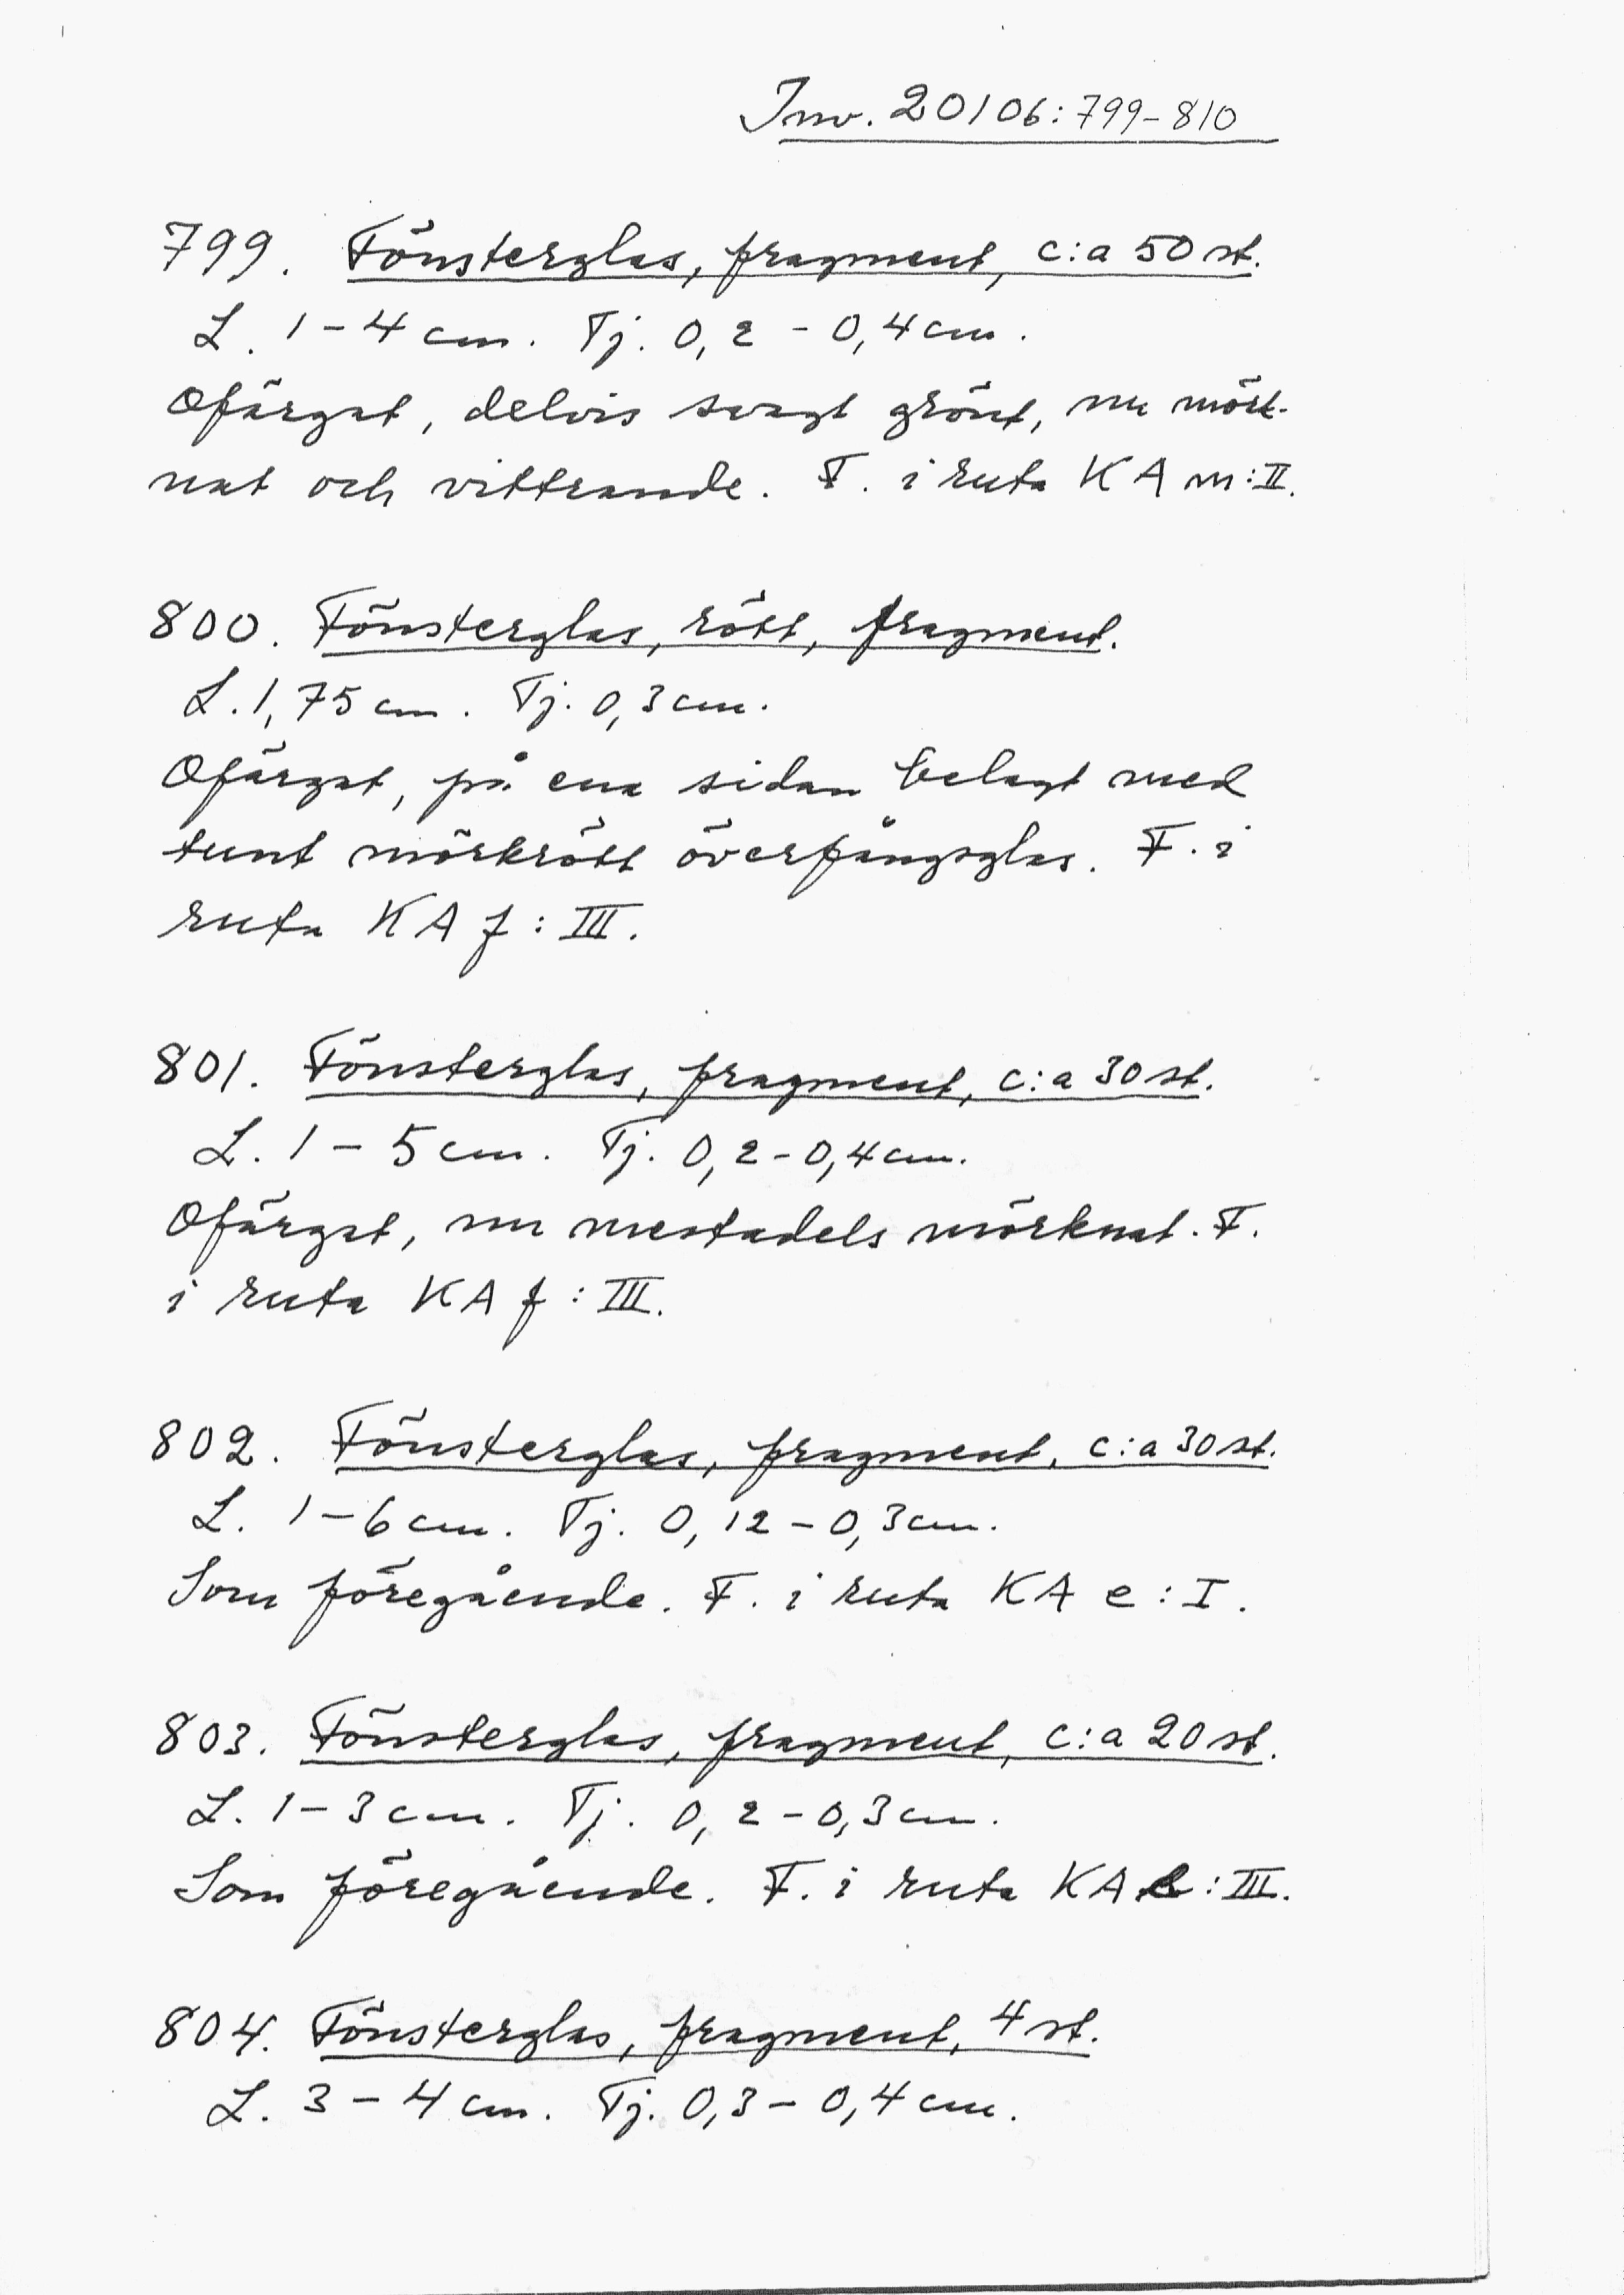 Inv. 20106:799-810
799. Fönsterglas, fragment, c:a 50 st.
L. 1-4 cm. Tj. 0,2 - 0,4 cm.
Ofärgat, delvis svagt grönt, nu mörk-
nat och vittrande. F. i ruta KA m:II.
800. Fönsterglas, rött, fragment.
L. 1,75 cm. Tj. 0,3 cm.
Ofärgat, på ena sidan belagt med
tunt mörkrött överfångsglas. F. i
ruta KA f: III.
801. Fönsterglas, fragment, c:a 30 st.
L. 1-5 cm. Tj. 0,2-0,4 cm.
Ofärgat, nu mestadels mörknat. F.
i ruta KA f: III.
802. Fönsterglas, fragment, c:a 30 st.
L. 1-6 cm. Tj. 0,12-0,3 cm.
Som föregående. F. i ruta KA e: I.
803. Fönsterglas, fragment, c:a 20 st.
L. 1-3 cm. Tj. 0,2-0,3 cm.
Som föregående. F. i ruta KA e: III.
804. Fönsterglas, fragment, 4 st.
L. 3-4 cm. Tj. 0,3-0,4 cm.